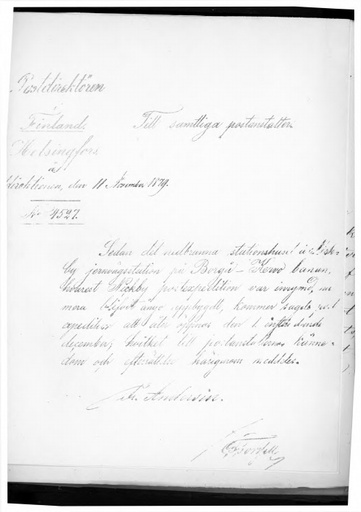 Postdirektören
i
Finland.
Helsingfors
å
Postdirektionen, den 11 November 1879.
No 4527.
Till samtliga postanstalter.
Sedan det nedbrunna stationshuset å Nick-
by jernvägsstation på Borgå - Kervo banan,
hvarest Nickby postexpedition var inrymd, nu-
mera blifvit ånyo uppbygdt, kommer sagde post
expedition att åter öppnas den 1 instundande
december, hvilket till postanstalternas känne-
dom och efterrättelse härigenom meddelas.